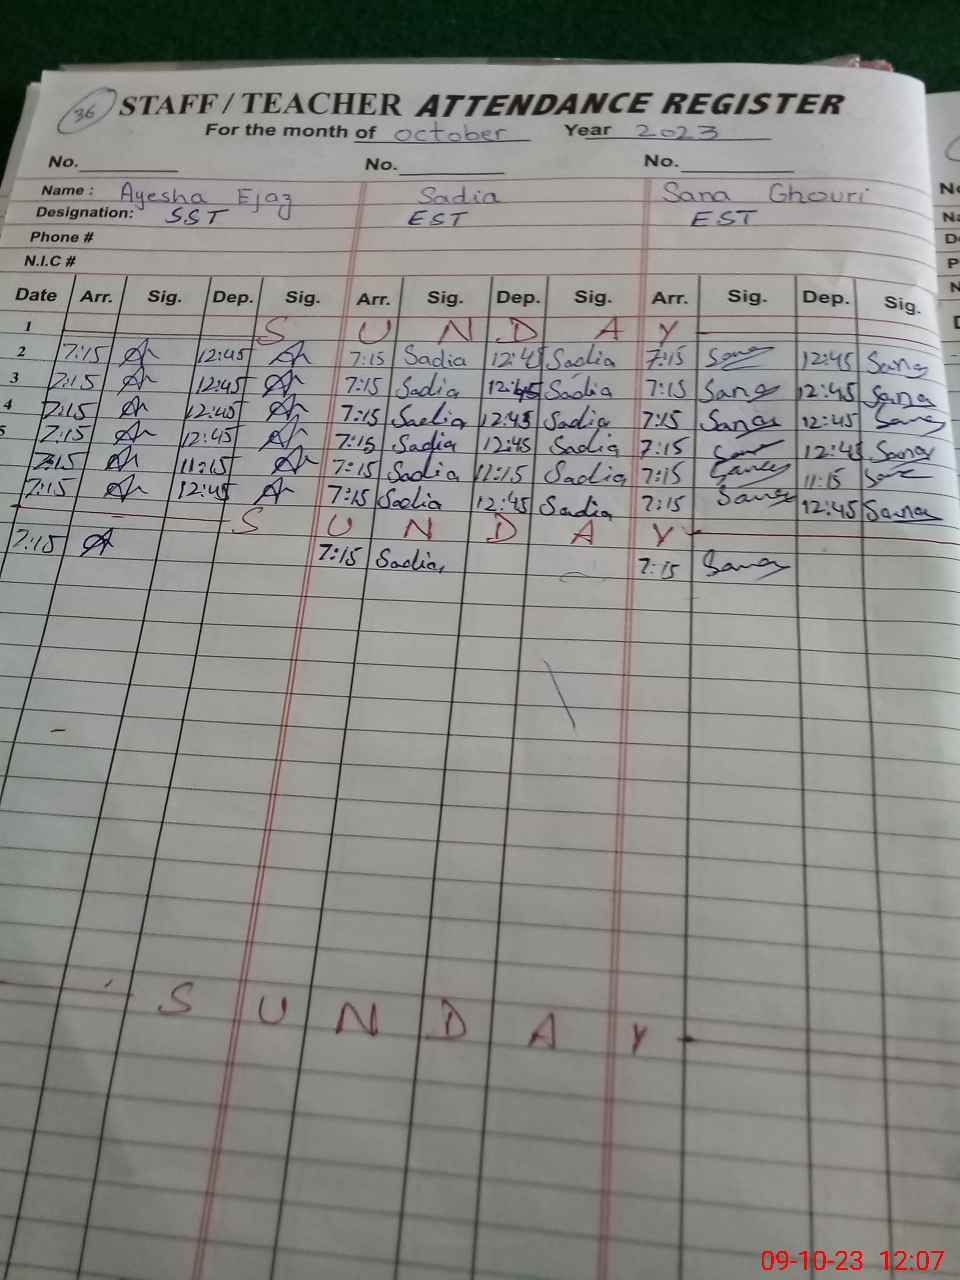 36 STAFF / TEACHER ATTENDANCE REGISTER
For the month of October Year 2023
No. No. No.
Name : Ayesha Ejaz Sadia Sana Ghouri
Designation: SST EST EST
Phone #
N.I.C #
Date Arr. Sig. Dep. Sig. Arr. Sig. Dep. Sig. Arr. Sig. Dep. Sig.
1 S U N D A Y
2 7:15 12:45 7:15 Sadia 12:4 Sadia 7:15 Sana 12:45 Sana
3 7:15 12:45 7:15 Sadia 12:45 Sadia 7:15 Sana 12:45 Sana
4 7:15 12:45 7:15 Sadia 12:45 Sadia 7:15 Sana 12:45 Sana
5 7:15 12:45 7:15 Sadia 12:45 Sadia 7:15 Sana 12:45 Sana
7:15 11:15 7:15 Sadia 11:15 Sadia 7:15 Sana 11:15 Sana
7:15 12:45 7:15 Sadia 12:45 Sadia 7:15 Sana 12:45 Sana
S U N D A Y
7:15 7:15 Sadia 7:15 Sana
S U N D A Y
09-10-23 12:07